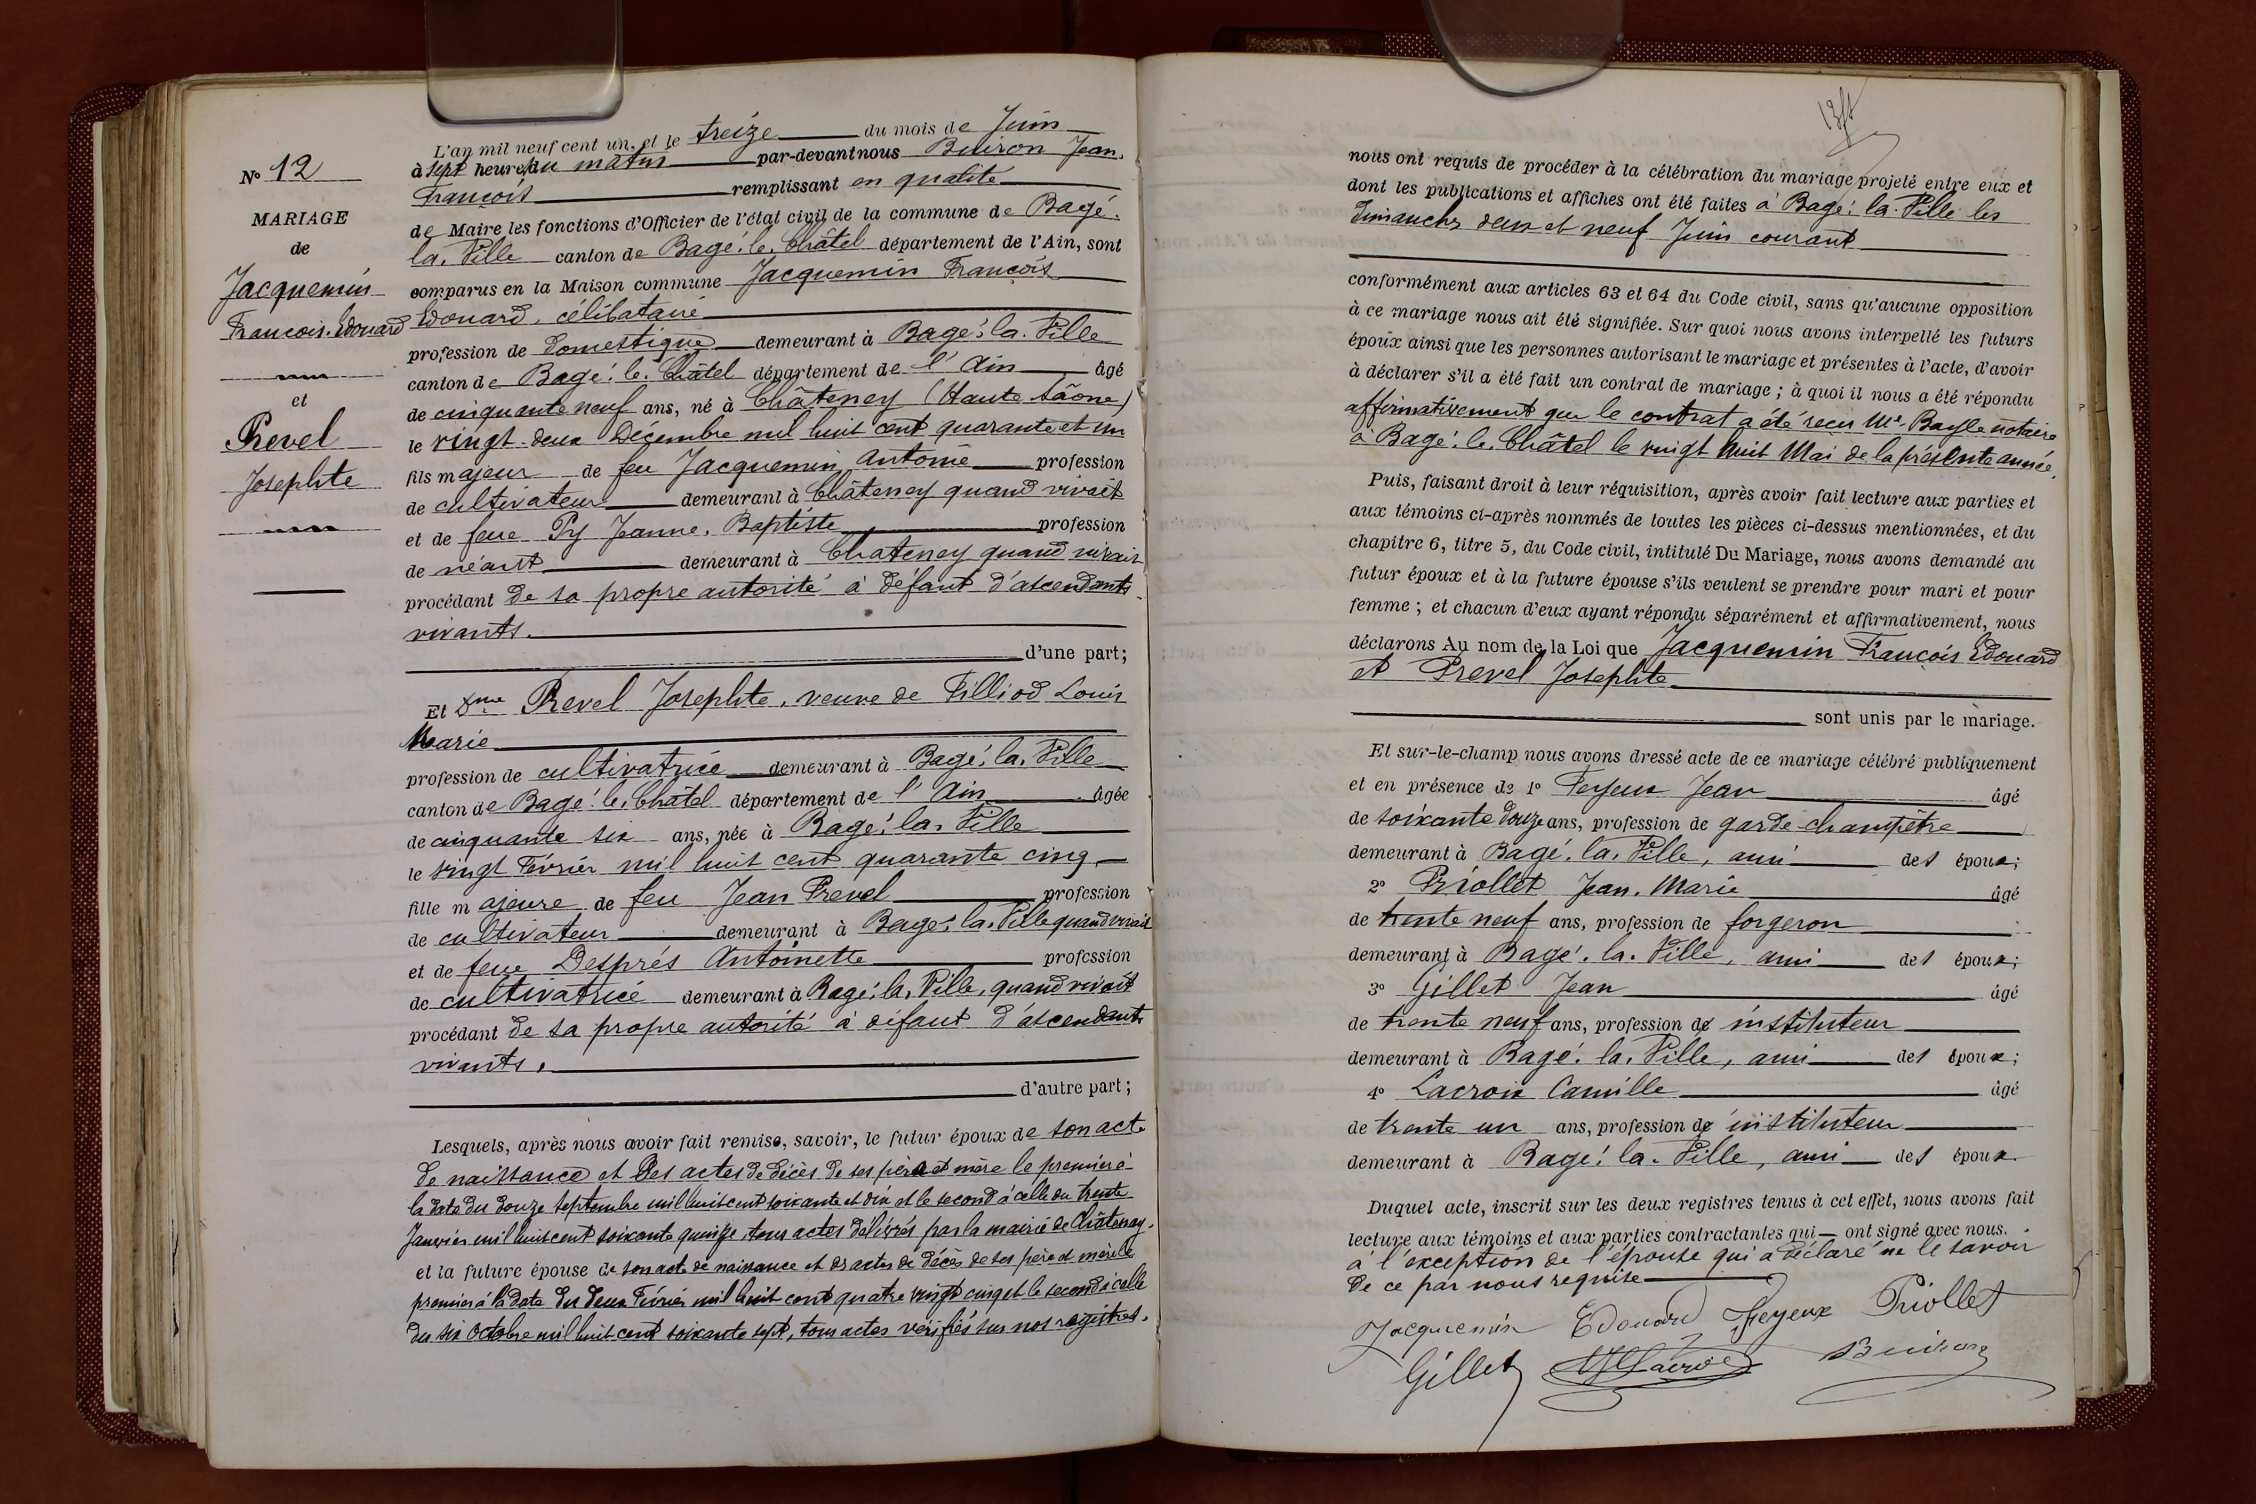 N° 12
MARIAGE
de
Jacquemin
François Edouard
et
Prevel
Josephte
L'an mil neuf cent un, et le treize du mois de Juin
à sept heures du matin par-devant nous Buiron Jean,
François remplissant en qualité
de Maire les fonctions d'Officier de l'état civil de la commune de Bagé-
la-Ville canton de Bagé-le-Châtel département de l'Ain, sont
comparus en la Maison commune Jacquemin François
Edouard, célibataire
profession de domestique demeurant à Bagé-la-Ville
canton de Bagé-le-Châtel département de l'Ain âgé
de cinquante neuf ans, né à Châteney (Haute Saône)
le vingt-deux Décembre mil huit cent quarante et un
fils majeur de feu Jacquemin Antoine profession
de cultivateur demeurant à Châteney quand vivait
et de feue Py Jeanne-Baptiste profession
de néant demeurant à Chateney quand vivait
procédant de sa propre autorité à défaut d'ascendants
vivants.
d'une part;
Et dme Prevel Josephte, veuve de Villiod Louis
Marie
profession de cultivatrice demeurant à Bagé-la-Ville
canton de Bagé-le-Châtel département de l'Ain âgée
de cinquante six ans, née à Bagé-la-Ville
le vingt Février mil huit cent quarante cinq
fille majeure de feu Jean Prevel profession
de cultivateur demeurant à Bagé-la-Ville quand vivait
et de feue Després Antoinette profession
de cultivatrice demeurant à Bagé-la-Ville, quand vivait
procédant de sa propre autorité à défaut d'ascendants
vivants,
d'autre part;
Lesquels, après nous avoir fait remise, savoir, le futur époux de son acte
de naissance et des actes de décès de ses père et mère le premier à
la date du douze Septembre mil huit cent soixante et dix et le second à celle du trente
Janvier mil huit cent soixante quinze, tous actes délivrés par la mairie de Châtenay.
et la future épouse de son acte de naissance et des actes de décès de ses père et mère le
premier à la date du deux Février mil huit cent quatre vingt cinq et le second à celle
du six Octobre mil huit cent soixante sept, tous actes vérifiés sur nos registres.
nous ont requis de procéder à la célébration du mariage projeté entre eux et
dont les publications et affiches ont été faites à Bagé-la-Ville les
dimanches deux et neuf Juin courant
conformément aux articles 63 et 64 du Code civil, sans qu'aucune opposition
à ce mariage nous ait été signifiée. Sur quoi nous avons interpellé les futurs
époux ainsi que les personnes autorisant le mariage et présentes à l'acte, d'avoir
à déclarer s'il a été fait un contrat de mariage; à quoi il nous a été répondu
affirmativement que le contrat a été reçu Me Bayle notaire
à Bagé-le-Châtel le vingt huit Mai de la présente année.
Puis, faisant droit à leur réquisition, après avoir fait lecture aux parties et
aux témoins ci-après nommés de toutes les pièces ci-dessus mentionnées, et du
chapitre 6, titre 5, du Code civil, intitulé Du Mariage, nous avons demandé au
futur époux et à la future épouse s'ils veulent se prendre pour mari et pour
femme; et chacun d'eux ayant répondu séparément et affirmativement, nous
déclarons Au nom de la Loi que Jacquemin François Edouard
et Prevel Josephte
sont unis par le mariage.
Et sur-le-champ nous avons dressé acte de ce mariage célébré publiquement
et en présence de 1° Feyeux Jean âgé
de soixante douze ans, profession de garde-champêtre
demeurant à Bagé-la-Ville, ami des époux;
2° Priollet Jean-Marie âgé
de trente neuf ans, profession de forgeron
demeurant à Bagé-la-Ville, ami des époux;
3° Gillet Jean âgé
de trente neuf ans, profession de instituteur
demeurant à Bagé-la-Ville, ami des époux;
4° Lacroix Camille âgé
de trente un ans, profession de instituteur
demeurant à Bagé-la-Ville, ami des époux.
Duquel acte, inscrit sur les deux registres tenus à cet effet, nous avons fait
lecture aux témoins et aux parties contractantes qui ont signé avec nous.
à l'exception de l'épouse qui a déclaré ne le savoir
de ce par nous requise
Jacquemin Edouard Feyeux Priollet
Gillet Lacroix Buiron